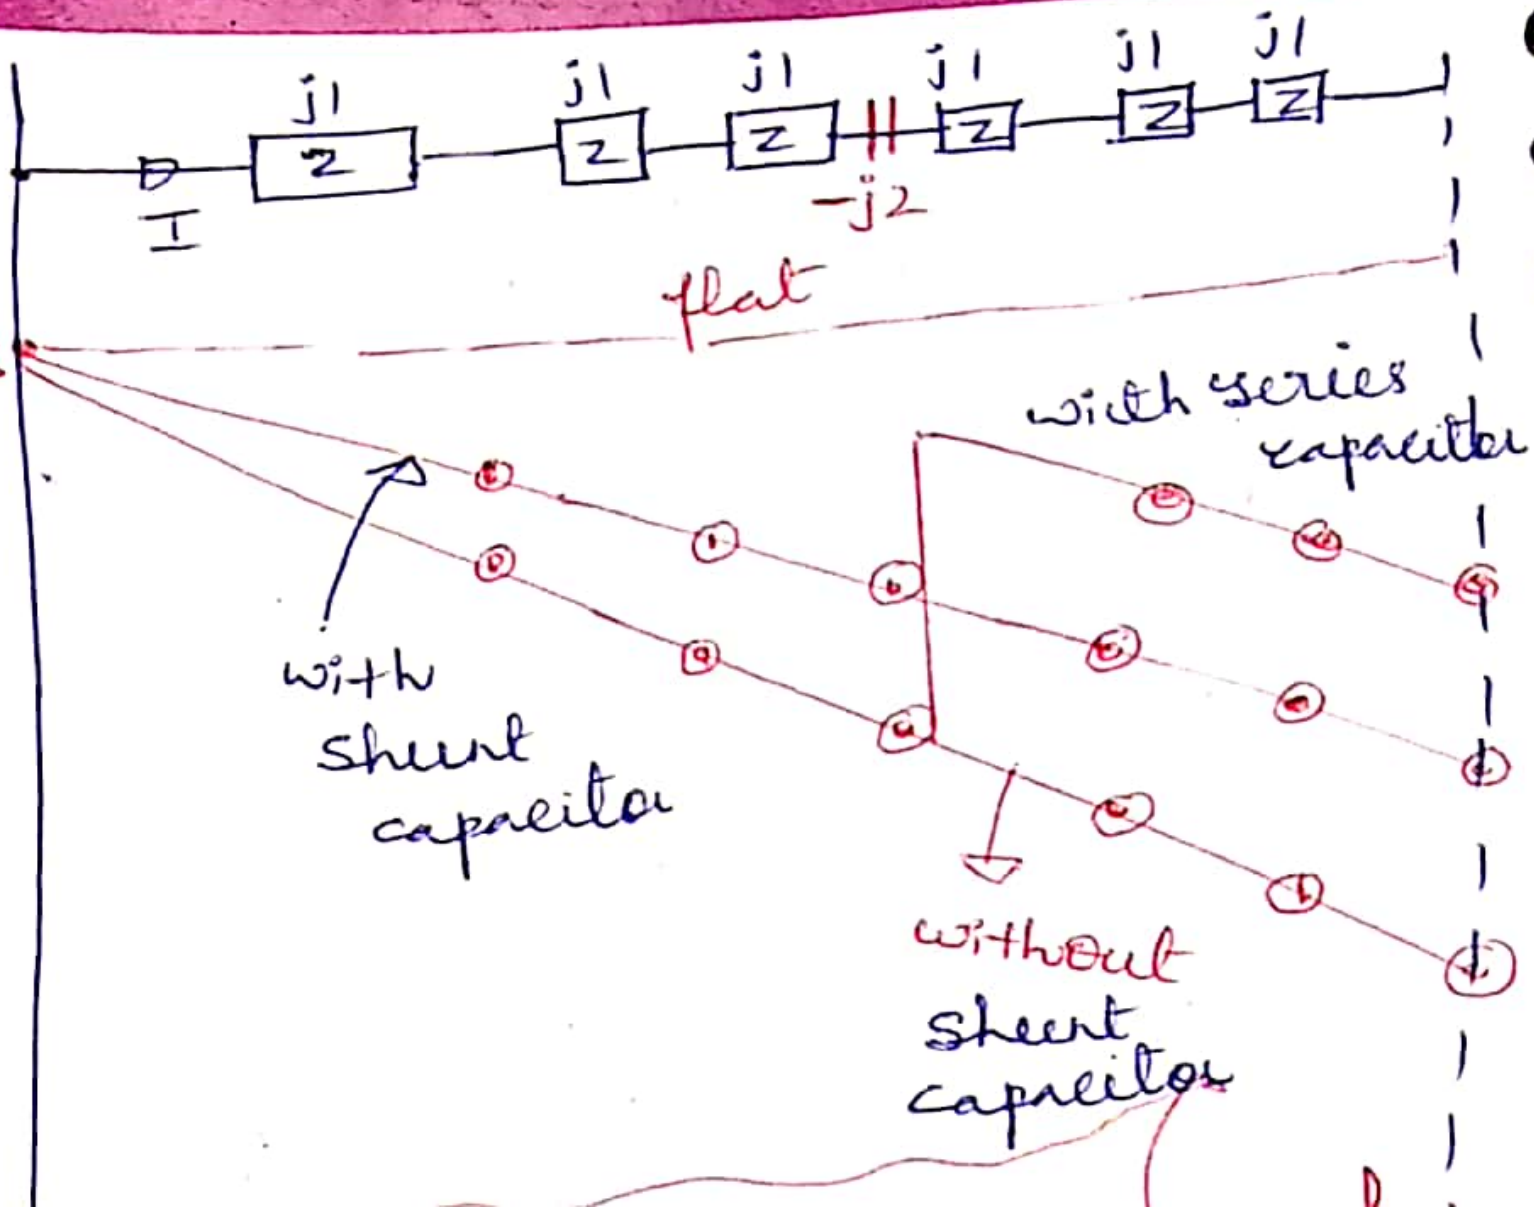 j1 j1 j1 j1 j1 j1
Z Z Z Z Z Z
-j2
I
flat
with series
capacitor
with
shunt
capacitor
without
shunt
capacitor